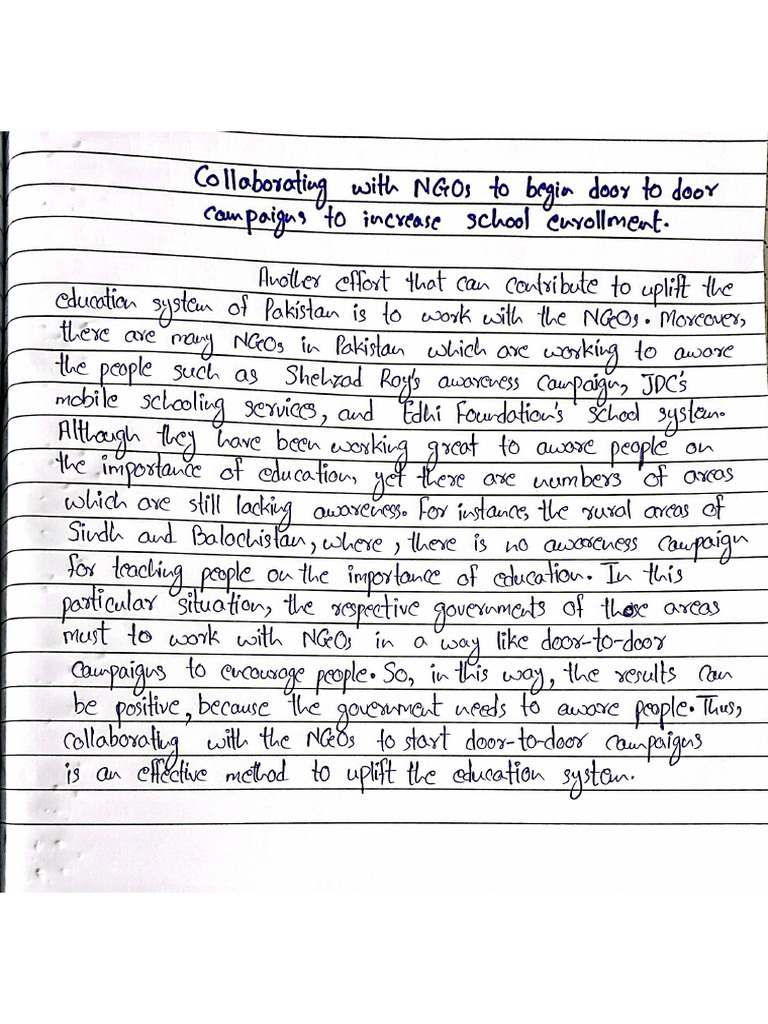 Collaborating with NGOs to begin door to door
campaigns to increase school enrollment.
Another effort that can contribute to uplift the
education system of Pakistan is to work with the NGOs. Moreover,
there are many NGOs in Pakistan which are working to aware
the people such as Shehzad Roy's awareness campaign, JDC's
mobile schooling services, and Edhi Foundation's school system.
Although they have been working great to aware people on
the importance of education, yet there are numbers of areas
which are still lacking awareness. For instance, the rural areas of
Sindh and Balochistan, where, there is no awareness campaign
for teaching people on the importance of education. In this
particular situation, the respective governments of those areas
must to work with NGOs in a way like door-to-door
campaigns to encourage people. So, in this way, the results can
be positive, because the government needs to aware people. Thus,
collaborating with the NGOs to start door-to-door campaigns
is an effective method to uplift the education system.